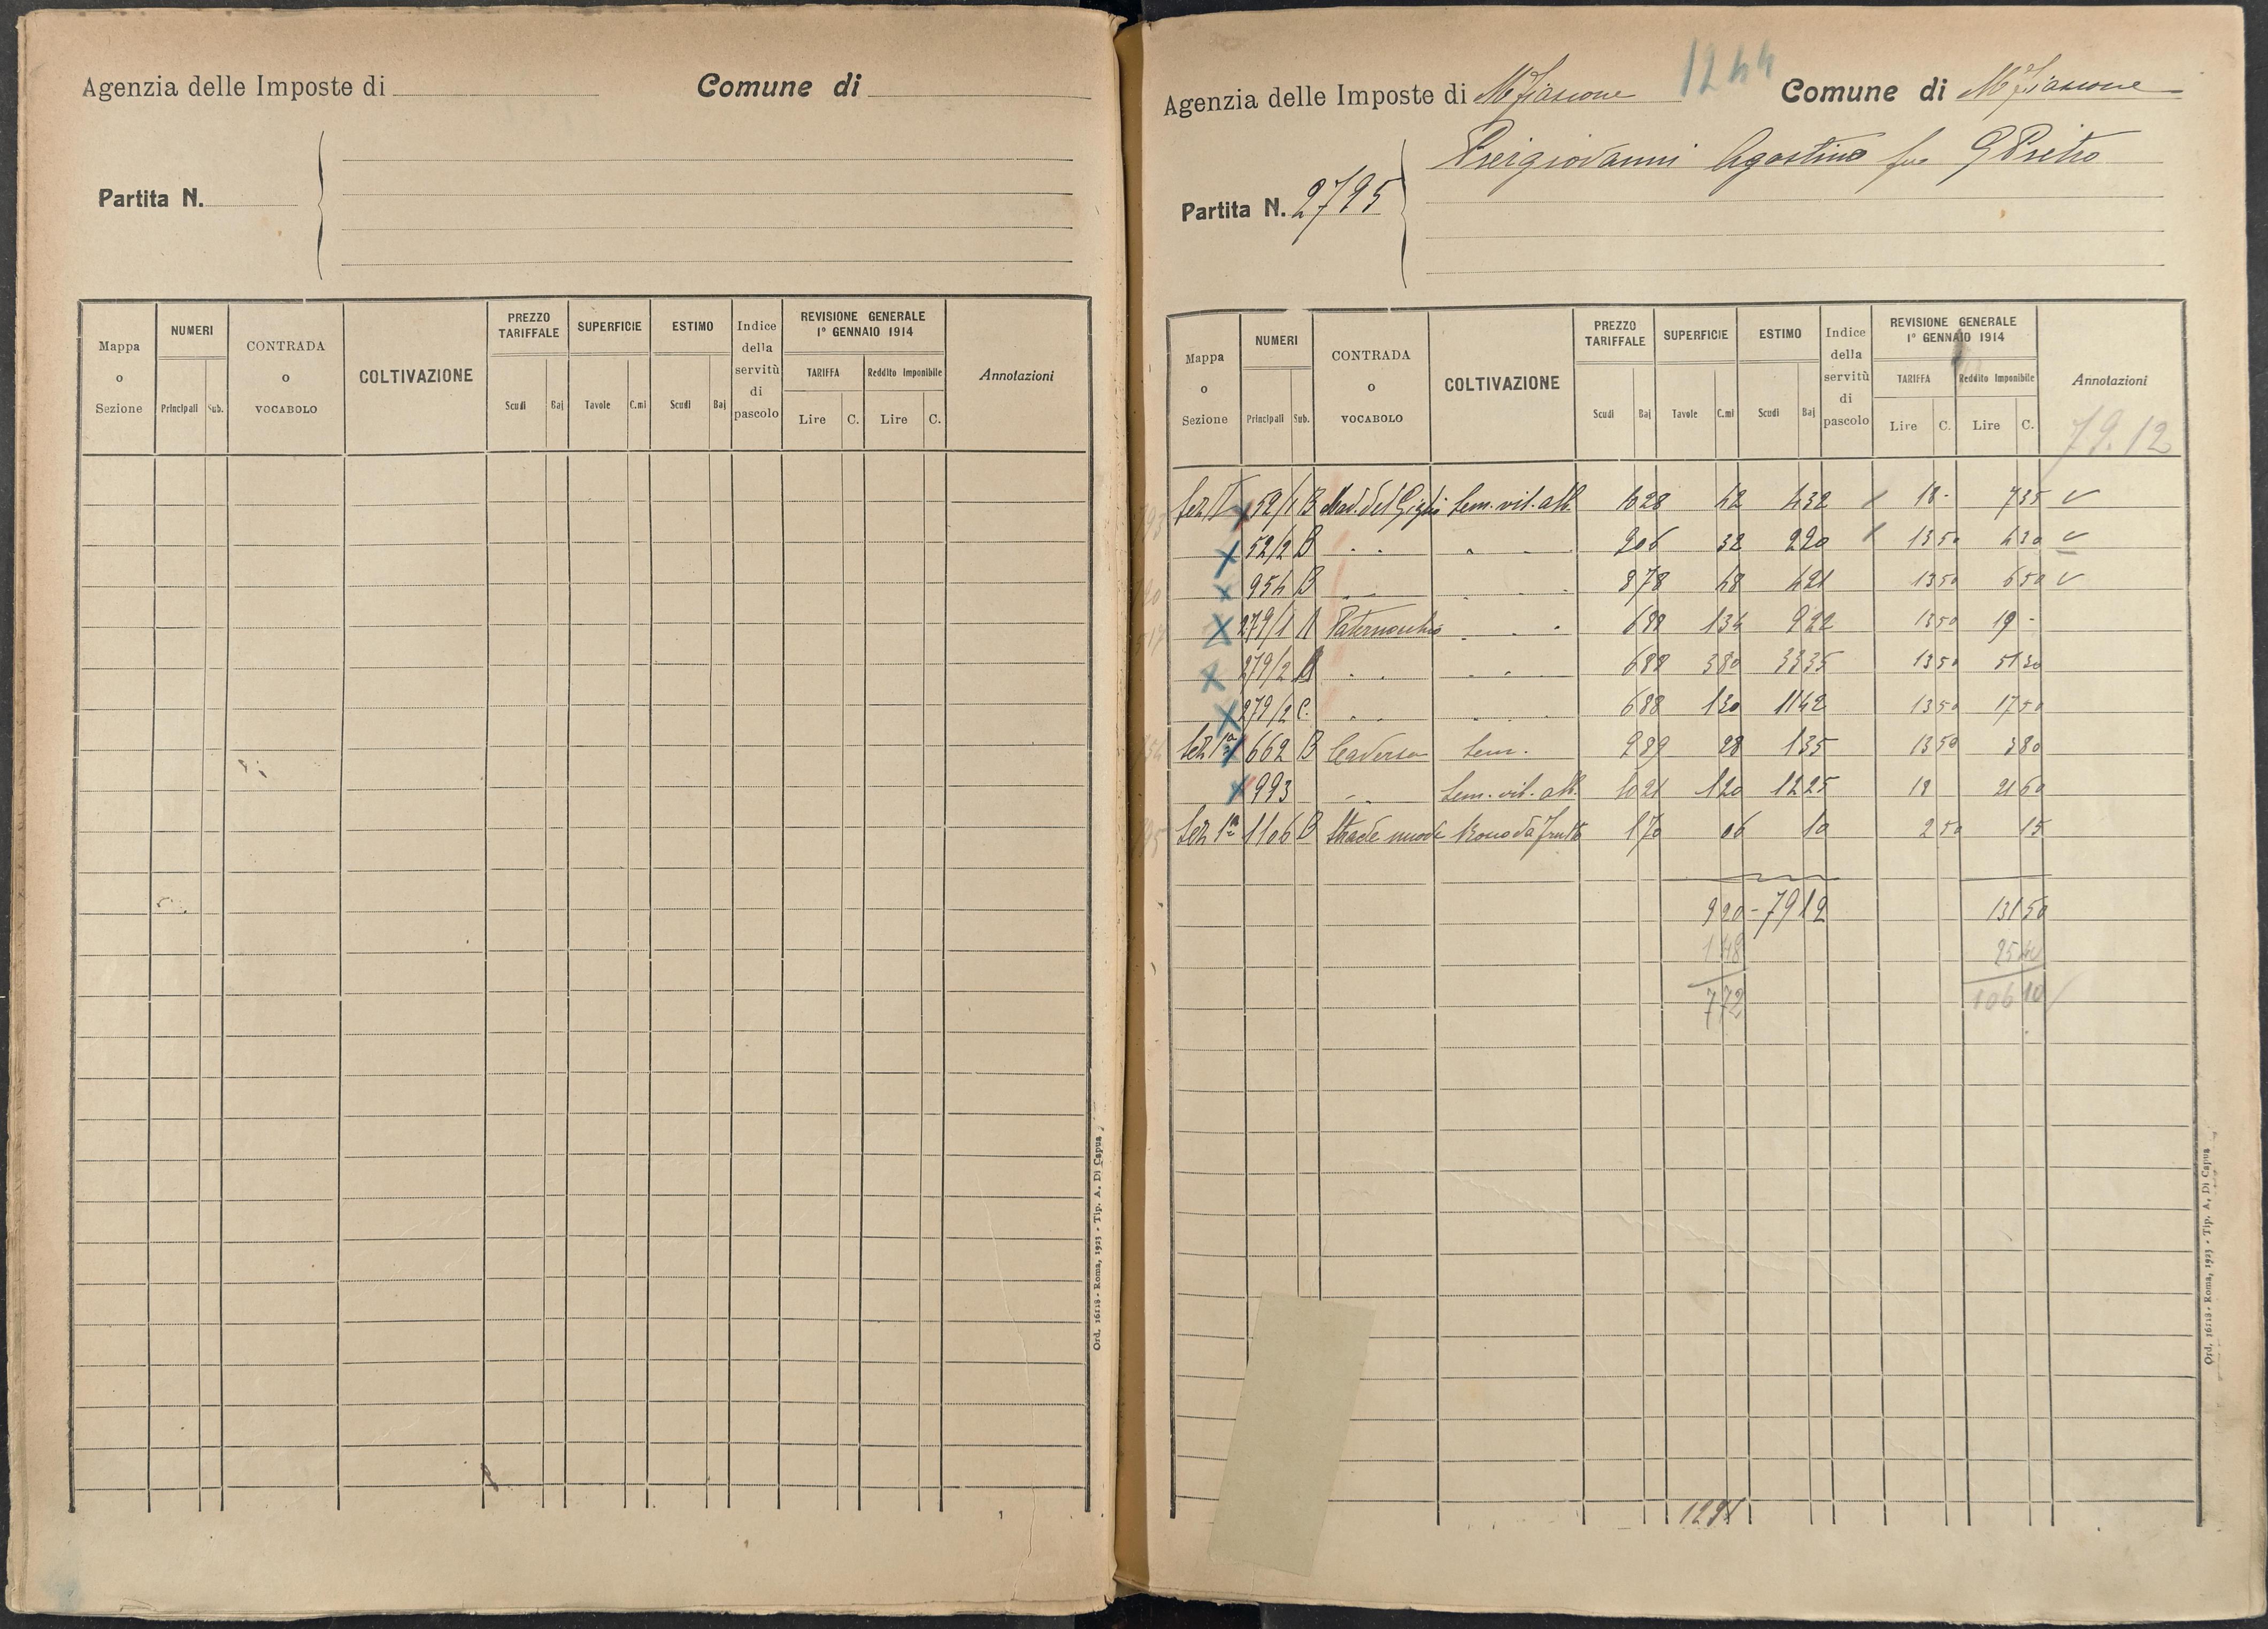 Agenzia delle Imposte di
Comune di
Partita N.
Mappa o Sezione
NUMERI
Principali Sub.
CONTRADA o VOCABOLO
COLTIVAZIONE
PREZZO TARIFFALE
Scudi Baj
SUPERFICIE
Tavole C.mi
ESTIMO
Scudi Baj
Indice della servitù di pascolo
REVISIONE GENERALE
1° GENNAIO 1914
TARIFFA
Lire C.
Reddito Imponibile
Lire C.
Annotazioni
Ord. 16118 - Roma, 1923 - Tip. A. Di Capua
1244
Agenzia delle Imposte di M Fiascone
Comune di M Fiascone
Partita N. 2795
Piergiovanni Agostino fu G Pietro
Mappa o Sezione
NUMERI
Principali Sub.
CONTRADA o VOCABOLO
COLTIVAZIONE
PREZZO TARIFFALE
Scudi Baj
SUPERFICIE
Tavole C.mi
ESTIMO
Scudi Baj
Indice della servitù di pascolo
REVISIONE GENERALE
1° GENNAIO 1914
TARIFFA
Lire C.
Reddito Imponibile
Lire C.
Annotazioni
79.12
Sez V 52/1 B Mad. del Giglio Sem. vit. alb. 10 28 42 4 32 18 - 7 35
52/2 B 32 2 20 13 50 4 30
954 B 8 78 48 4 21 13 50 6 50
279/1 A 6 88 1 34 9 22 13 50 19 -
279/2 6 88 3 80 33 35 13 50 51 30
279/2 C. 6 88 1 30 11 42 13 50 17 50
Sez 1ª 662 B Sem. 28 1 35 13 50 3 80
993 Sem. vit. alb. 10 21 1 20 12 25 18 21 60
Sez 1ª 1106 B Strade nuove 1 70 06 10 2 50 15
9 20 - 79 12 131 50
1 48 25 40
7 72 106 10
1291
Ord. 16118 - Roma, 1923 - Tip. A. Di Capua